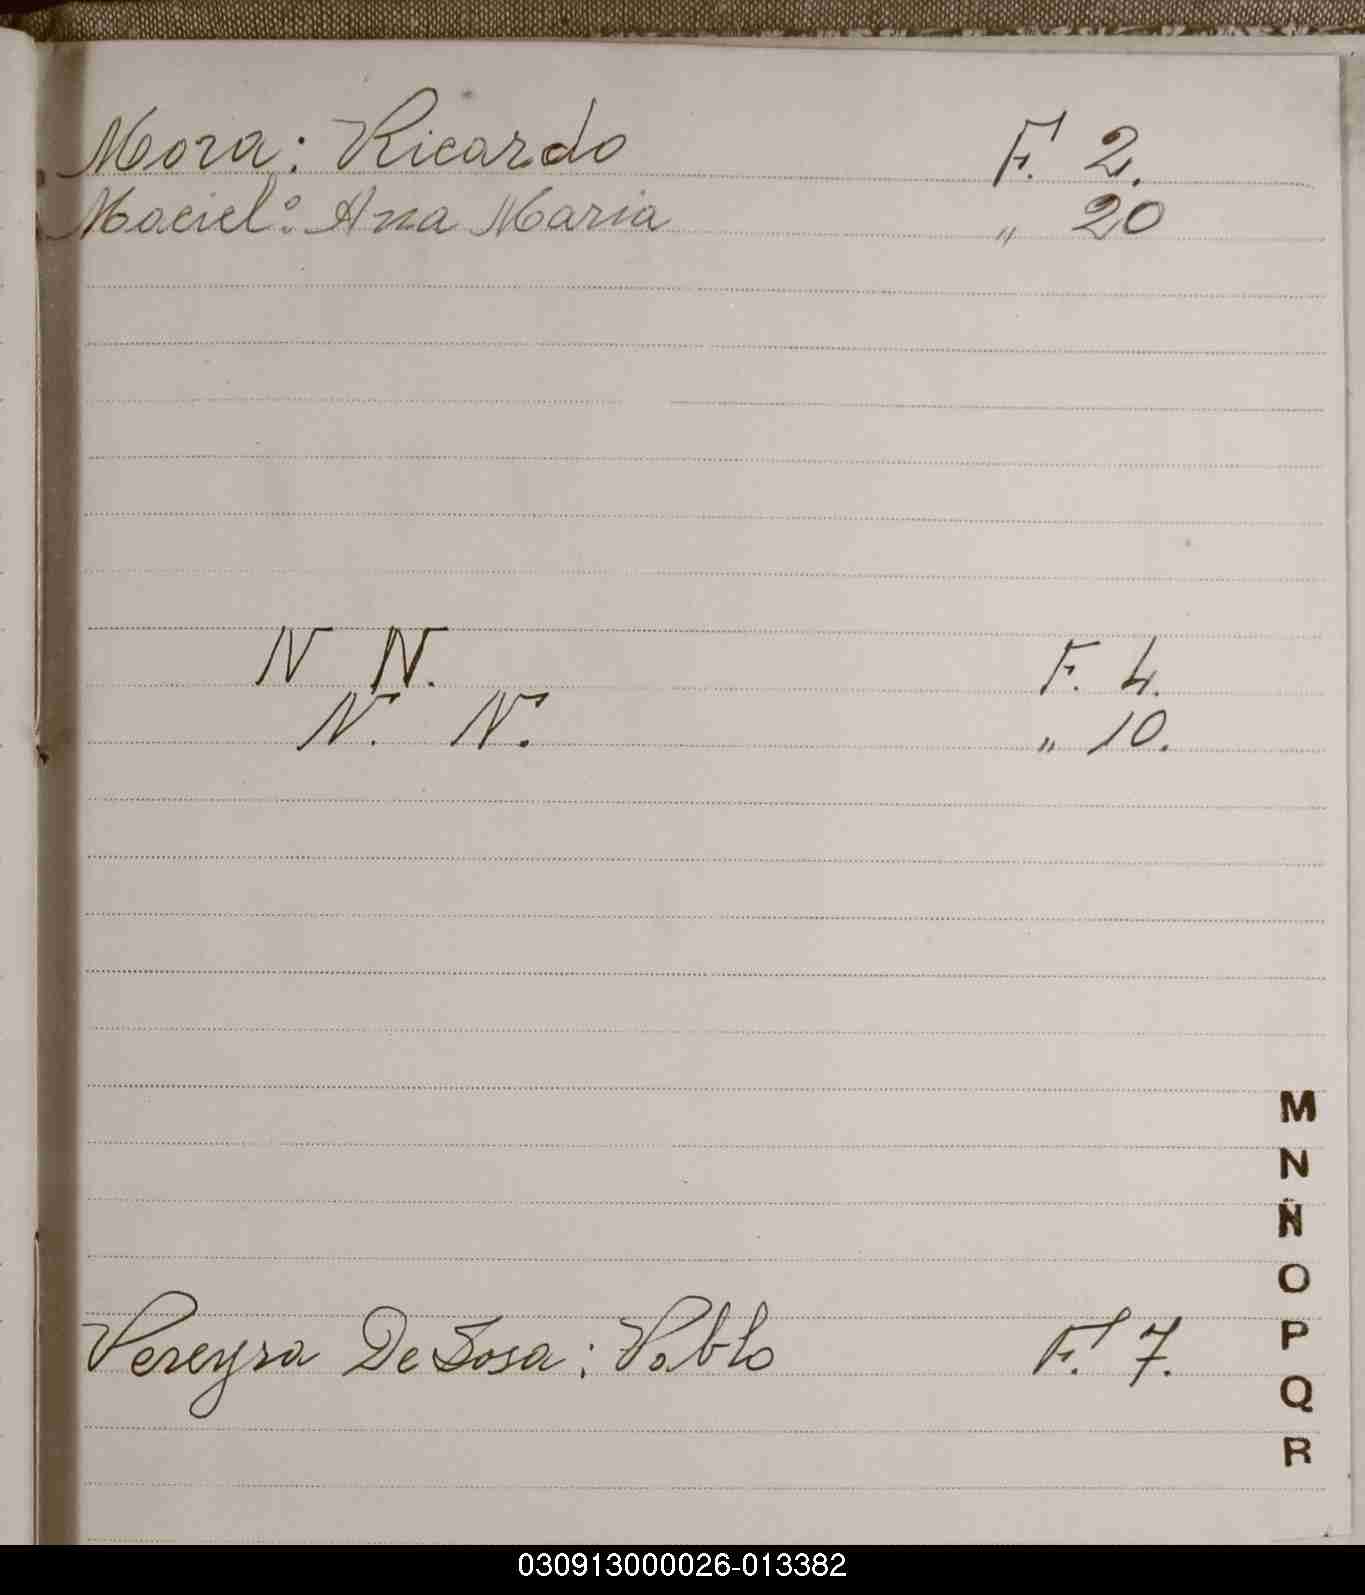 Mora: Ricardo F. 2.
Maciel: Ana Maria " 20
N N. F. 4.
N. N. " 10.
M
N
Ñ
O
Pereyra De Sosa; Pablo F. 7.
P
Q
R
030913000026-013382